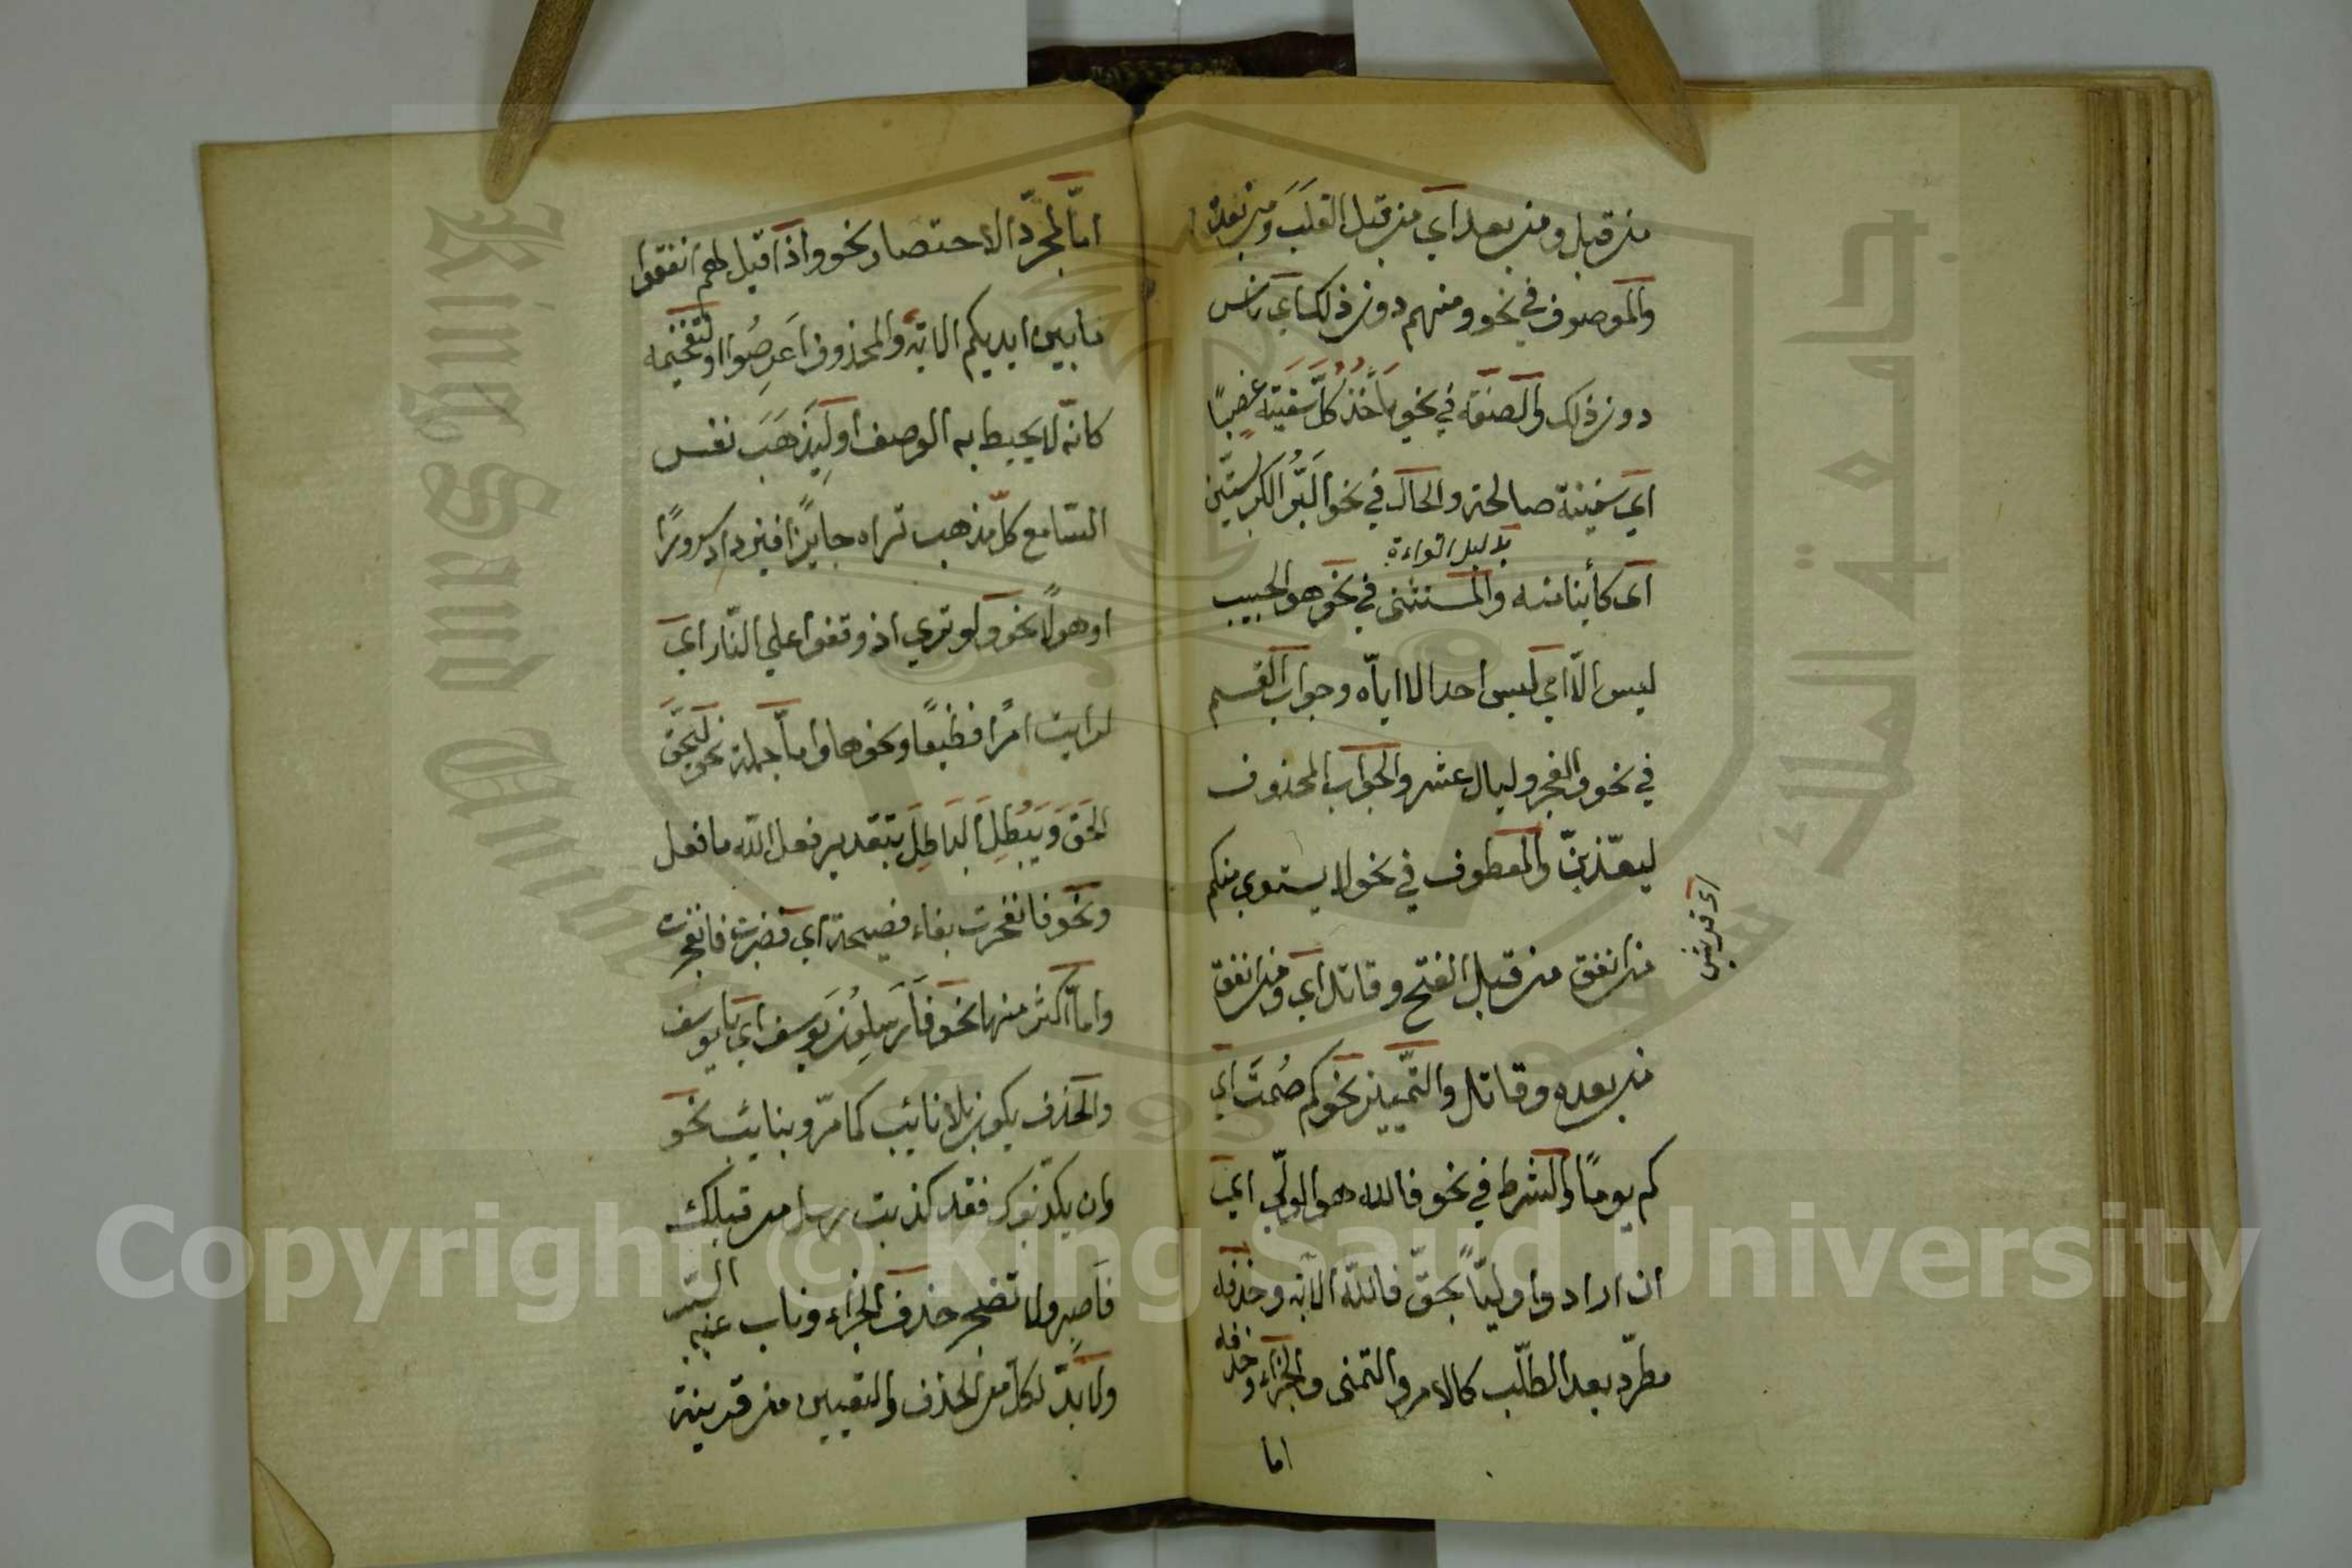 من قبل ومن بعد اي من قبل الغلب ومن بعده
والموصوف في نحو ومنهم دون ذلك اي ناس
دون ذلك والصفة في نحو ياخذ كل سفينة غصبًا
اي سفينة صالحة والحال في نحو البُرّ الكر بستين
اي كائنا منه والمستثنى في نحو هو الحبيب
بدليل القراءة
ليس الّا اي ليس احدا الا اياه وجواب القسم
في نحو والفجر وليال عشر والجواب المحذوف
ليعذبنّ والمعطوف في نحو لا يستوي منكم
اى قريش
من انفق من قبل الفتح وقاتل اي ومن انفق
من بعده وقاتل والتمييز نحو كم صُمتَ اي
كم يومًا والشرط في نحو فالله هو الولي اي
ان ارادوا وليّاً بحقّ فالله الآية وحذفه
مطرد بعد الطلب كالامر والتمنى والجزاء وحذفه
اما
امّا لمجرّد الاختصار نحو واذا قيل لهم انفقوا
ما بين ايديكم الاية والمحذوف اَعرِضُوا او لتفخيمه
كانه لا يحيط به الوصف او لِيَذهَبَ نفس
السّامع كلّ مذهب تراه جايزًا فيزداد سرورًا
او هولًا نحو ولو تري اذ وقفوا علي النّار اي
لرايت امرًا فظيعًا ونحوها وامّا جملة نحو ليحقّ
الحَقّ وَيُبْطِلَ البَاطِلَ بتقدير فعل الله ما فعل
ونحو فانفجرت بفاء فصيحة اي فضربت فانفجرت
وامّا اكثر منها نحو فَاَرسِلُونِ يوسف اي يا يوسف
والحذف يكون بلا نائب كما مرّ وبنايب نحو
وان يكذبوك فقد كذبت رسل من قبلك
فاصبر ولا تضجر حذف الجزاء وناب عنه السّبب
ولا بدّ لكل من الحذف والتعيين من قرينة
King Saud University
جامعة الملك سعود
1957
Copyright © King Saud University